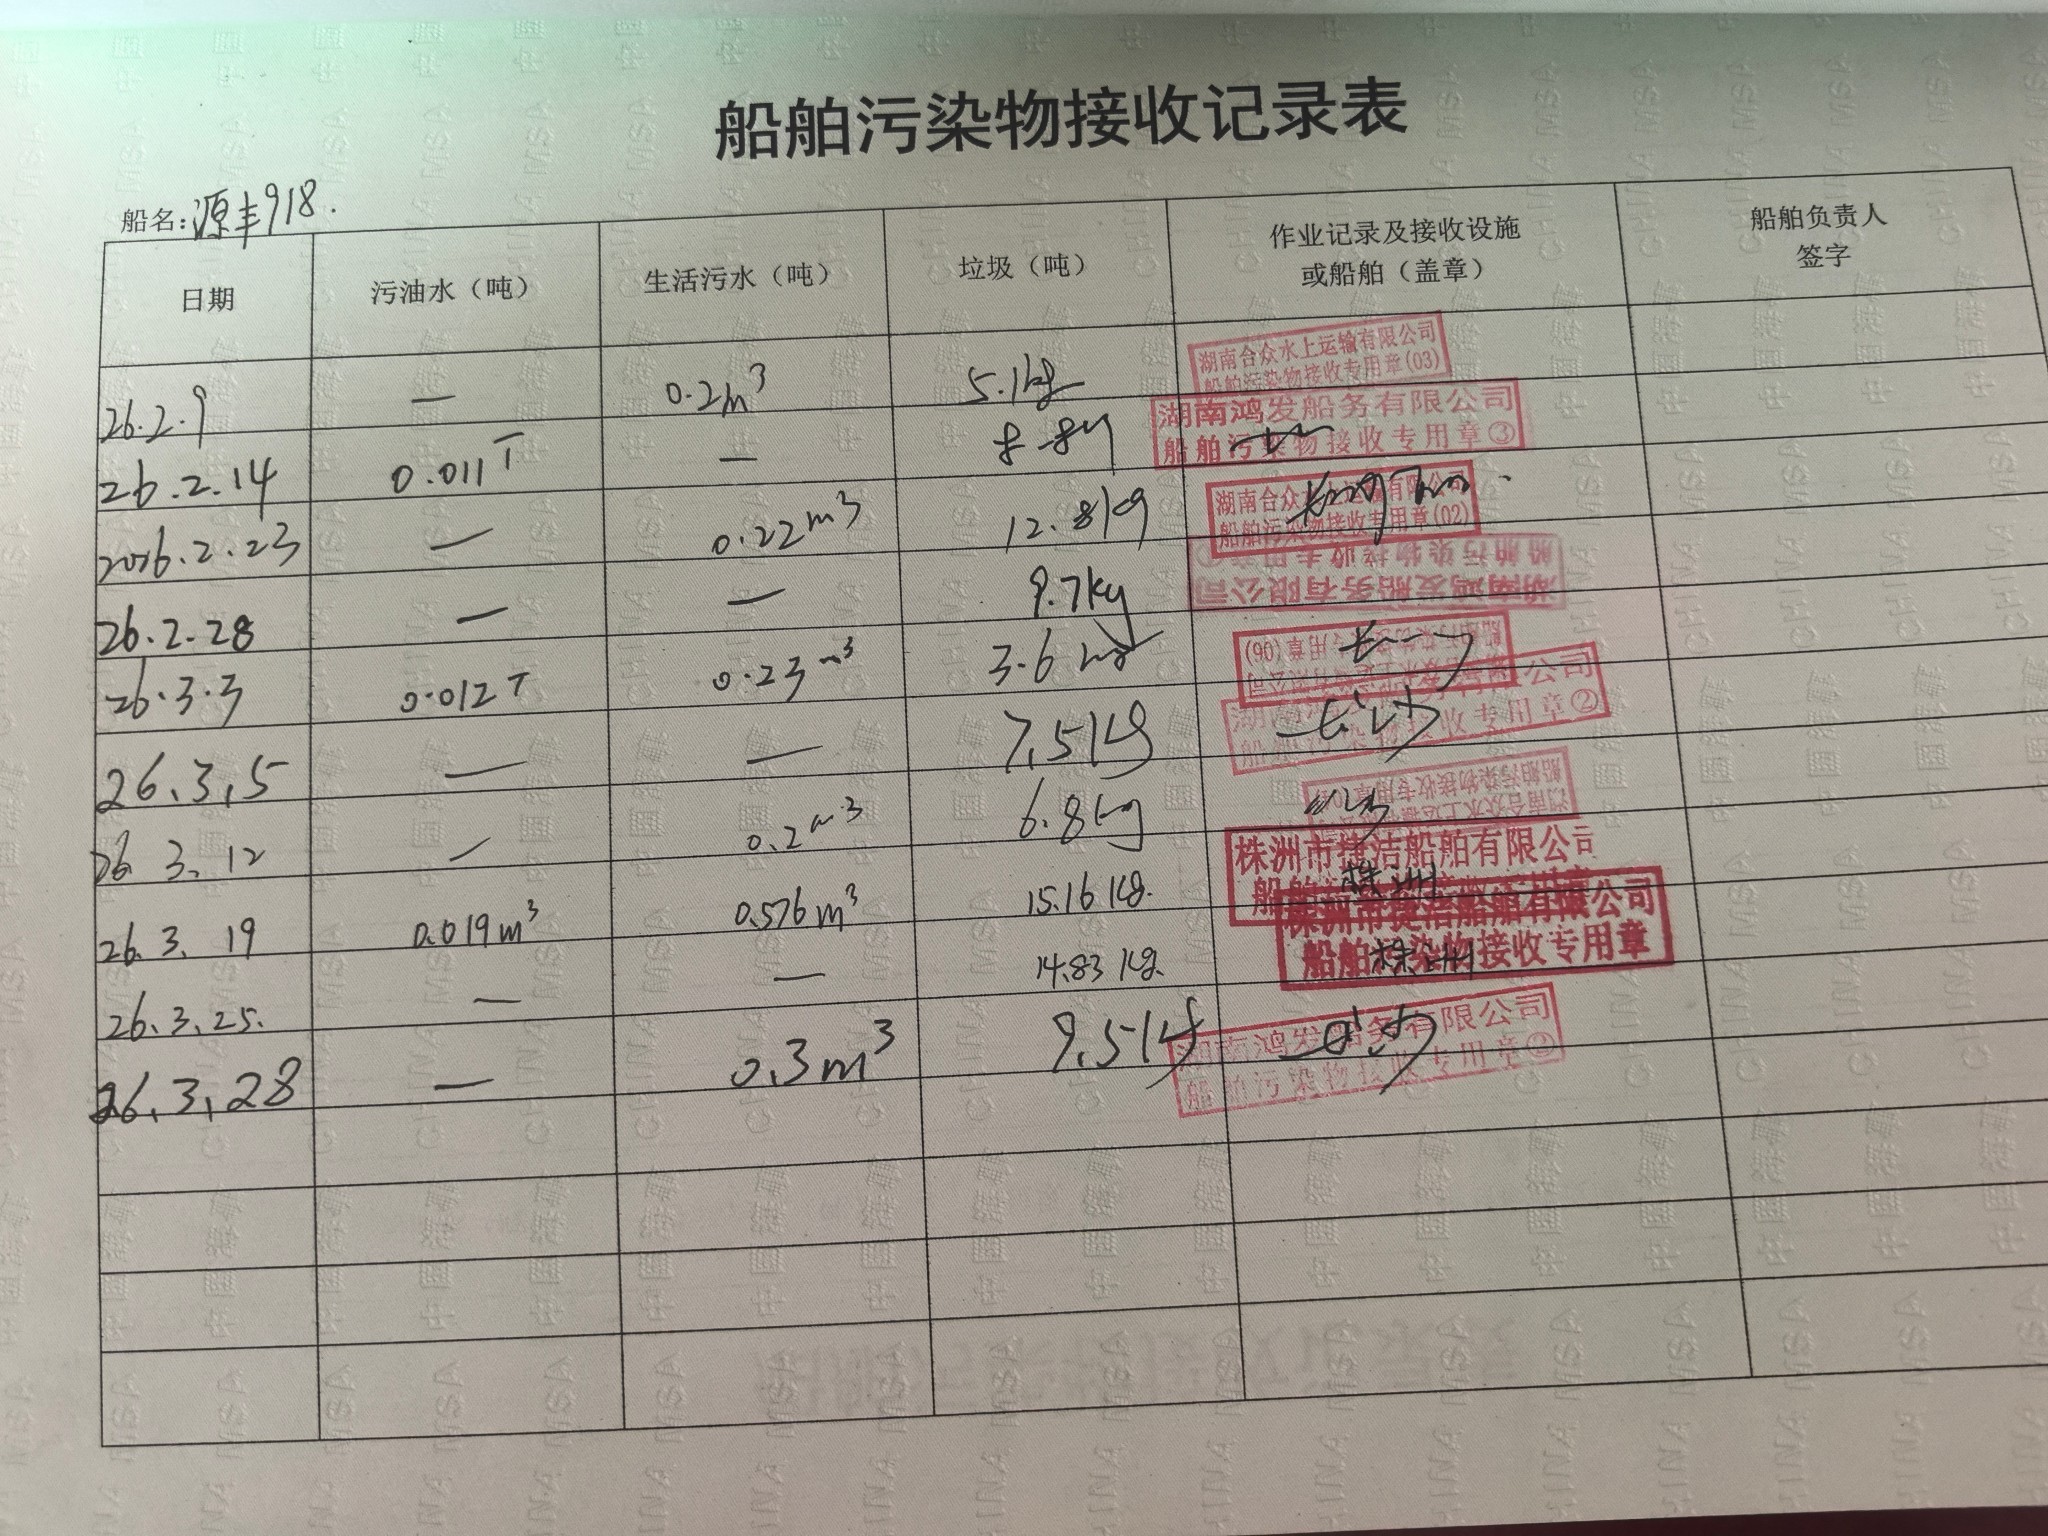 船舶污染物接收记录表
船名:源丰918.
日期 污油水（吨） 生活污水（吨） 垃圾（吨） 作业记录及接收设施或船舶（盖章） 船舶负责人签字
26.2.9 — 0.2m³ 5.1kg
湖南合众水上运输有限公司
船舶污染物接收专用章(03)
26.2.14 0.011T — 8.8
湖南鸿发船务有限公司
船舶污染物接收专用章③
2026.2.23 — 0.22m³ 12.8kg
湖南合众水上运输有限公司
船舶污染物接收专用章(02)
26.2.28 — — 9.7kg
湖南鸿发船务有限公司
船舶污染物接收专用章
26.3.3 0.012T 0.23m³ 3.6
专用章(06)
26.3.5 — — 7.5kg
湖南鸿发船务有限公司
船舶污染物接收专用章②
26.3.12 — 0.2m³ 6.8kg
湖南合众水上运输有限公司
船舶污染物接收专用章
26.3.19 0.019m³ 0.576m³ 15.16Kg.
株洲市捷洁船舶有限公司
株洲
26.3.25. — — 14.83Kg.
株洲市捷洁船舶有限公司
船舶污染物接收专用章
株洲
26.3.28 — 0.3m³ 9.5kg
湖南鸿发船务有限公司
船舶污染物接收专用章②